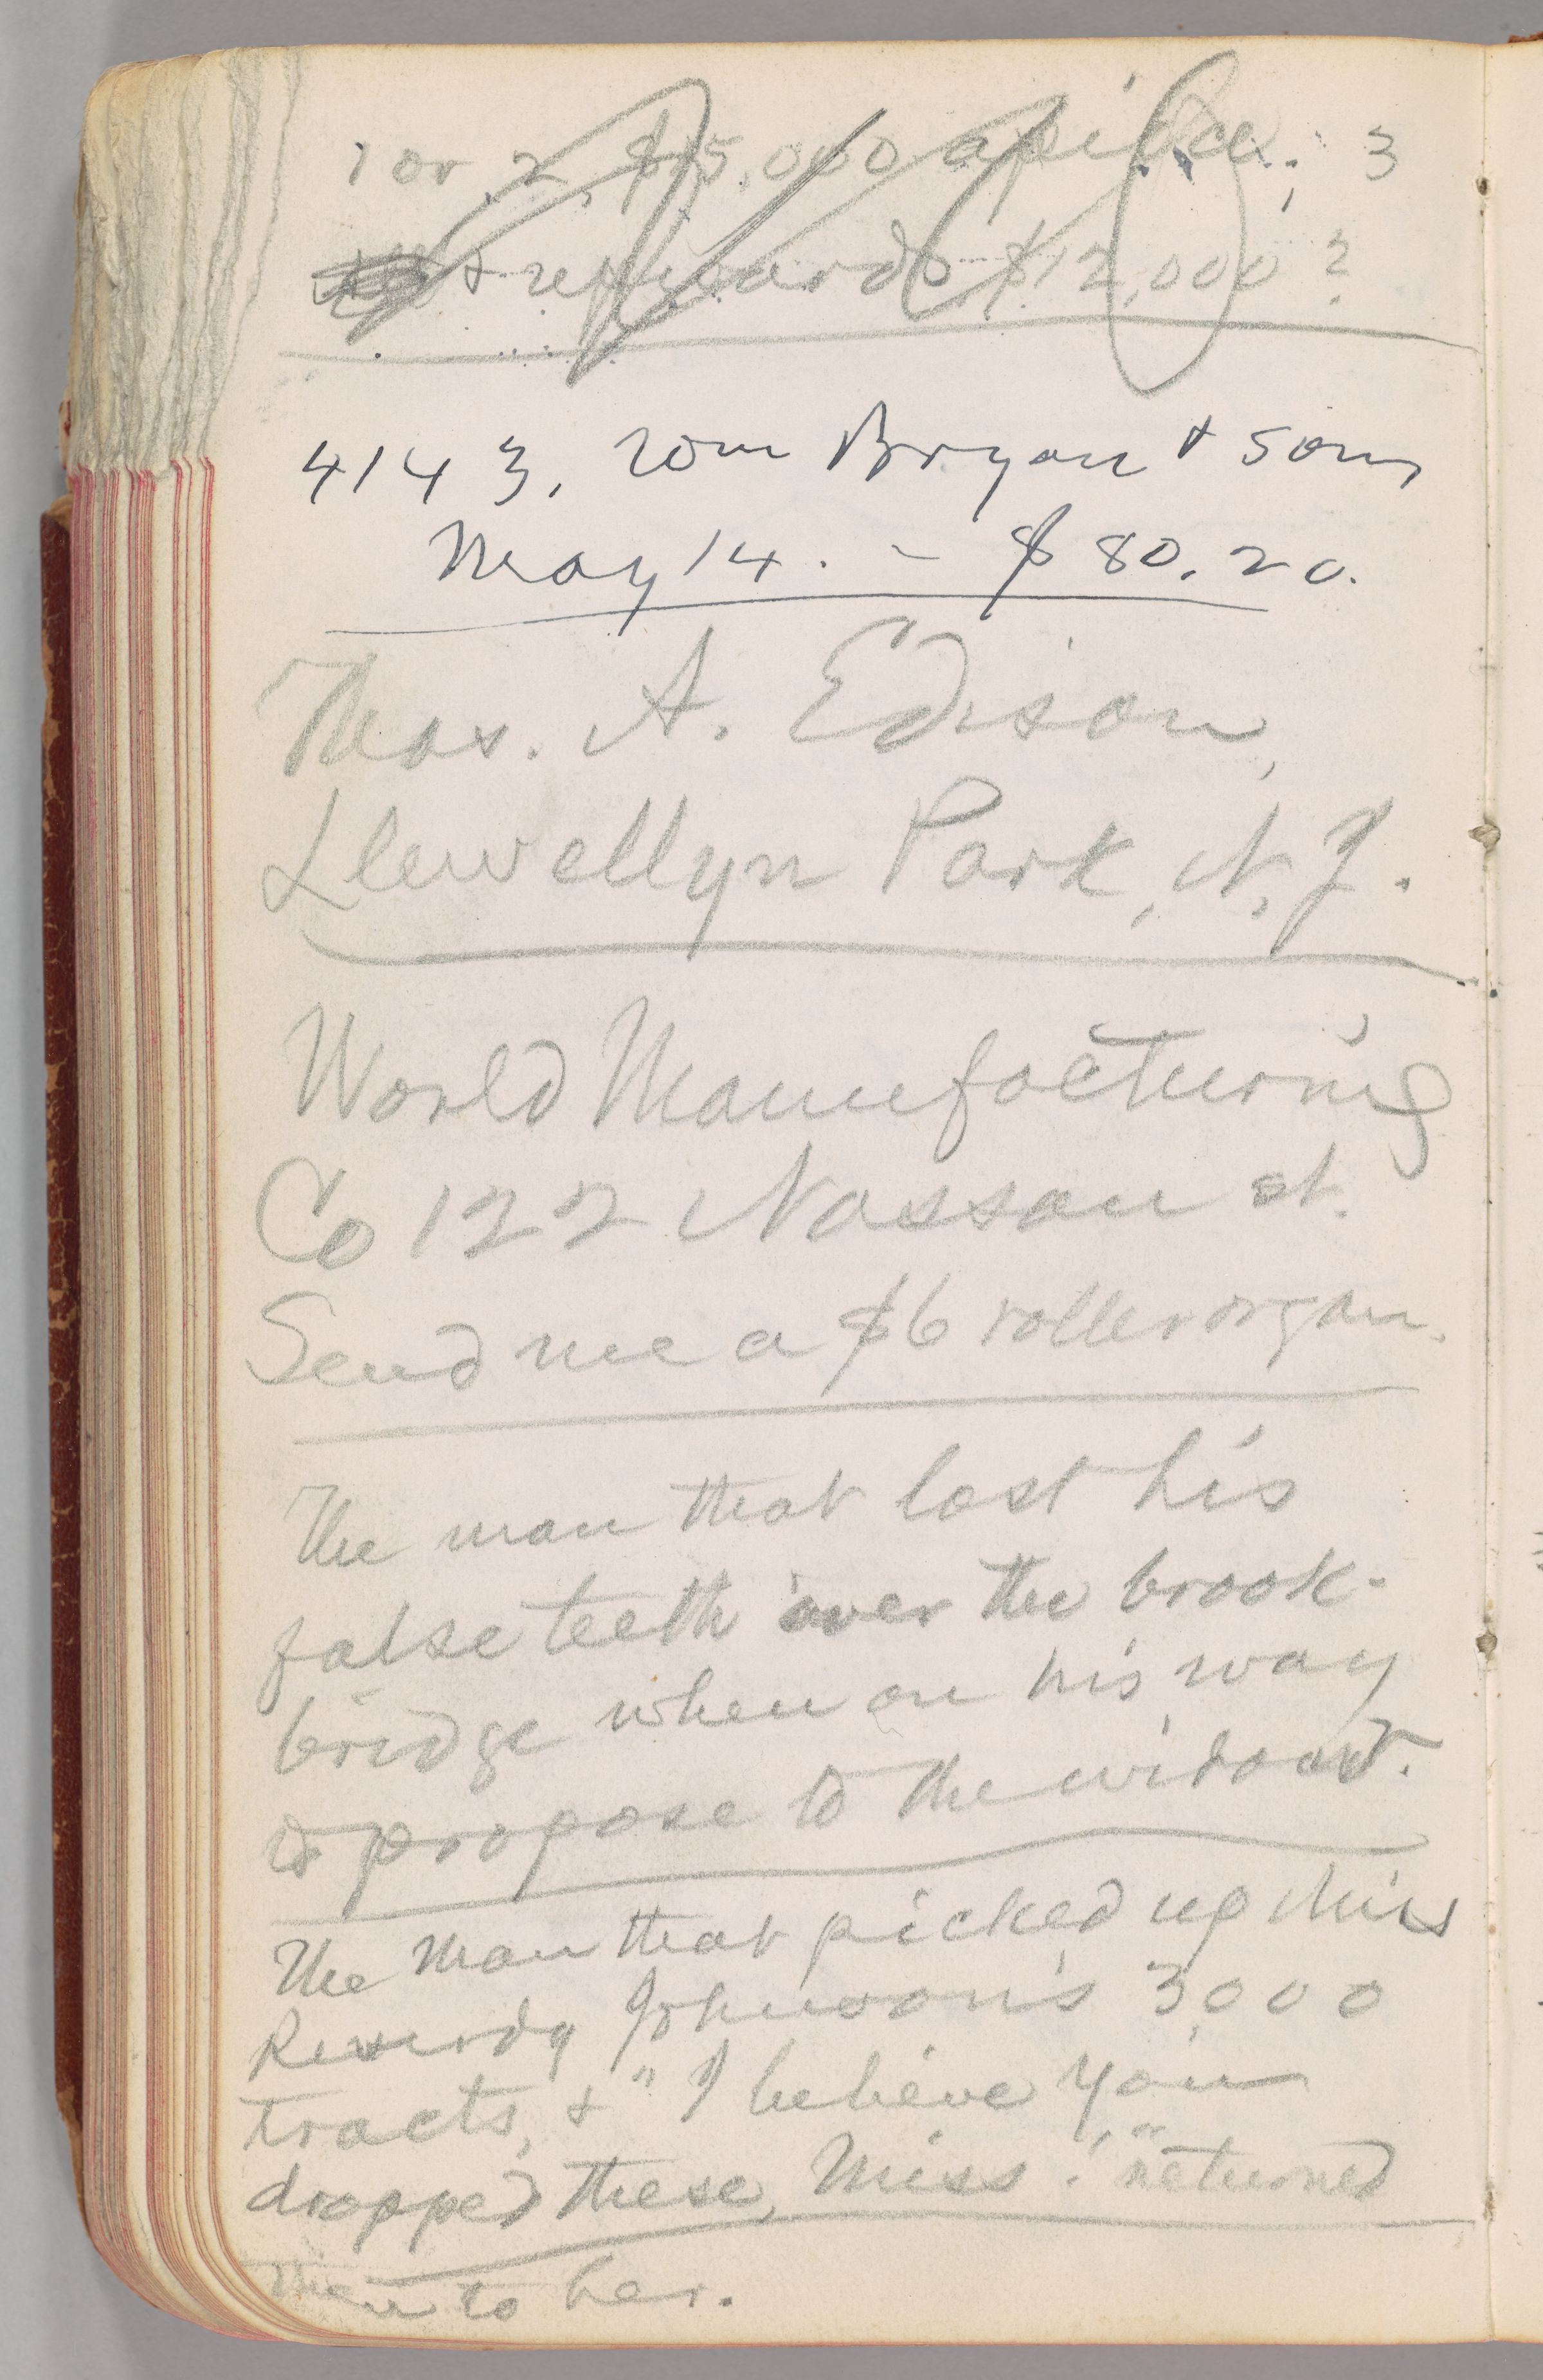 1 or 2, $15,000 apiece; 3
& upwards $12,000?
4143, Wm Bryan & Son,
May 14. - $80.20.
Thos. A. Edison,
Llewellyn Park, N.J.
World Manufacturing
Co 122 Nassau st.
Send me a $6 roller organ.
The man that lost his
false teeth over the brook-
bridge when on his way
to propose to the widow.
The man that picked up Miss
Johnson's 3,000
tracts, & "I believe you
dropped these, Miss." returned
them to her.